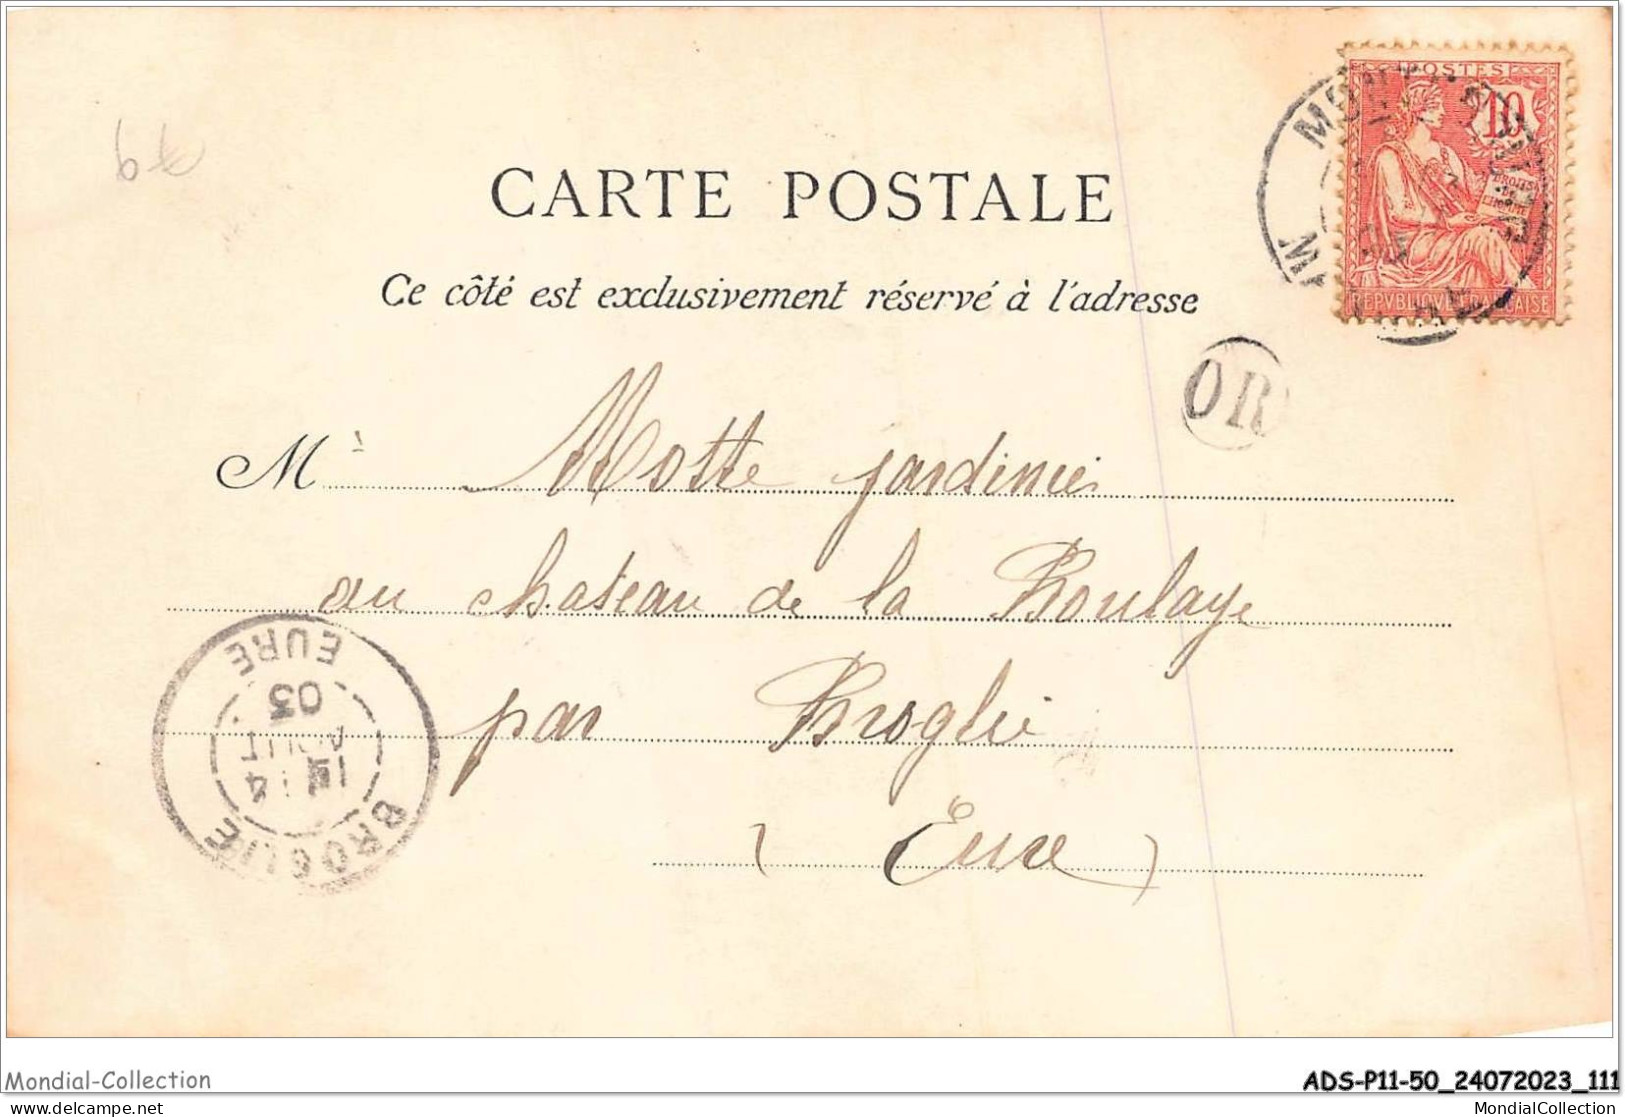 POSTES
10
DROITS
REPVBLIQVE FRANCAISE
CARTE POSTALE
Ce côté est exclusivement réservé à l'adresse
OR
M Motte jardinier
au chateau de la Boulaye
par Broglie
(Eure)
EURE
03
AOUT
14
BROGLIE
Mondial-Collection
ADS-P11-50_24072023_111
delcampe.net
MondialCollection